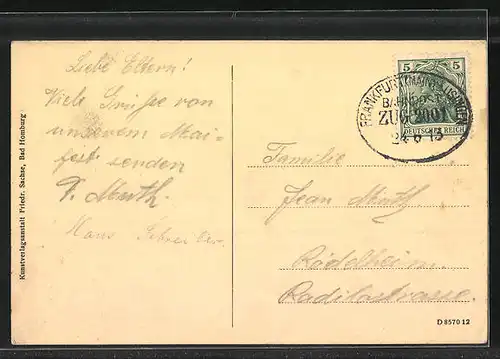 Liebe Eltern!
Viele Grüsse von
unserem Mai-
senden
F. Muth.
Hans
Kunstverlagsanstalt Friedr. Sachse, Bad Homburg
5 5
DEUTSCHES REICH
FRANKFURT (MAIN)-USINGEN
BAHNPOST
ZUG 2001
24 6 13
Familie
Jean Muth
Rödelheim.
Radilostrasse.
D 8570 12